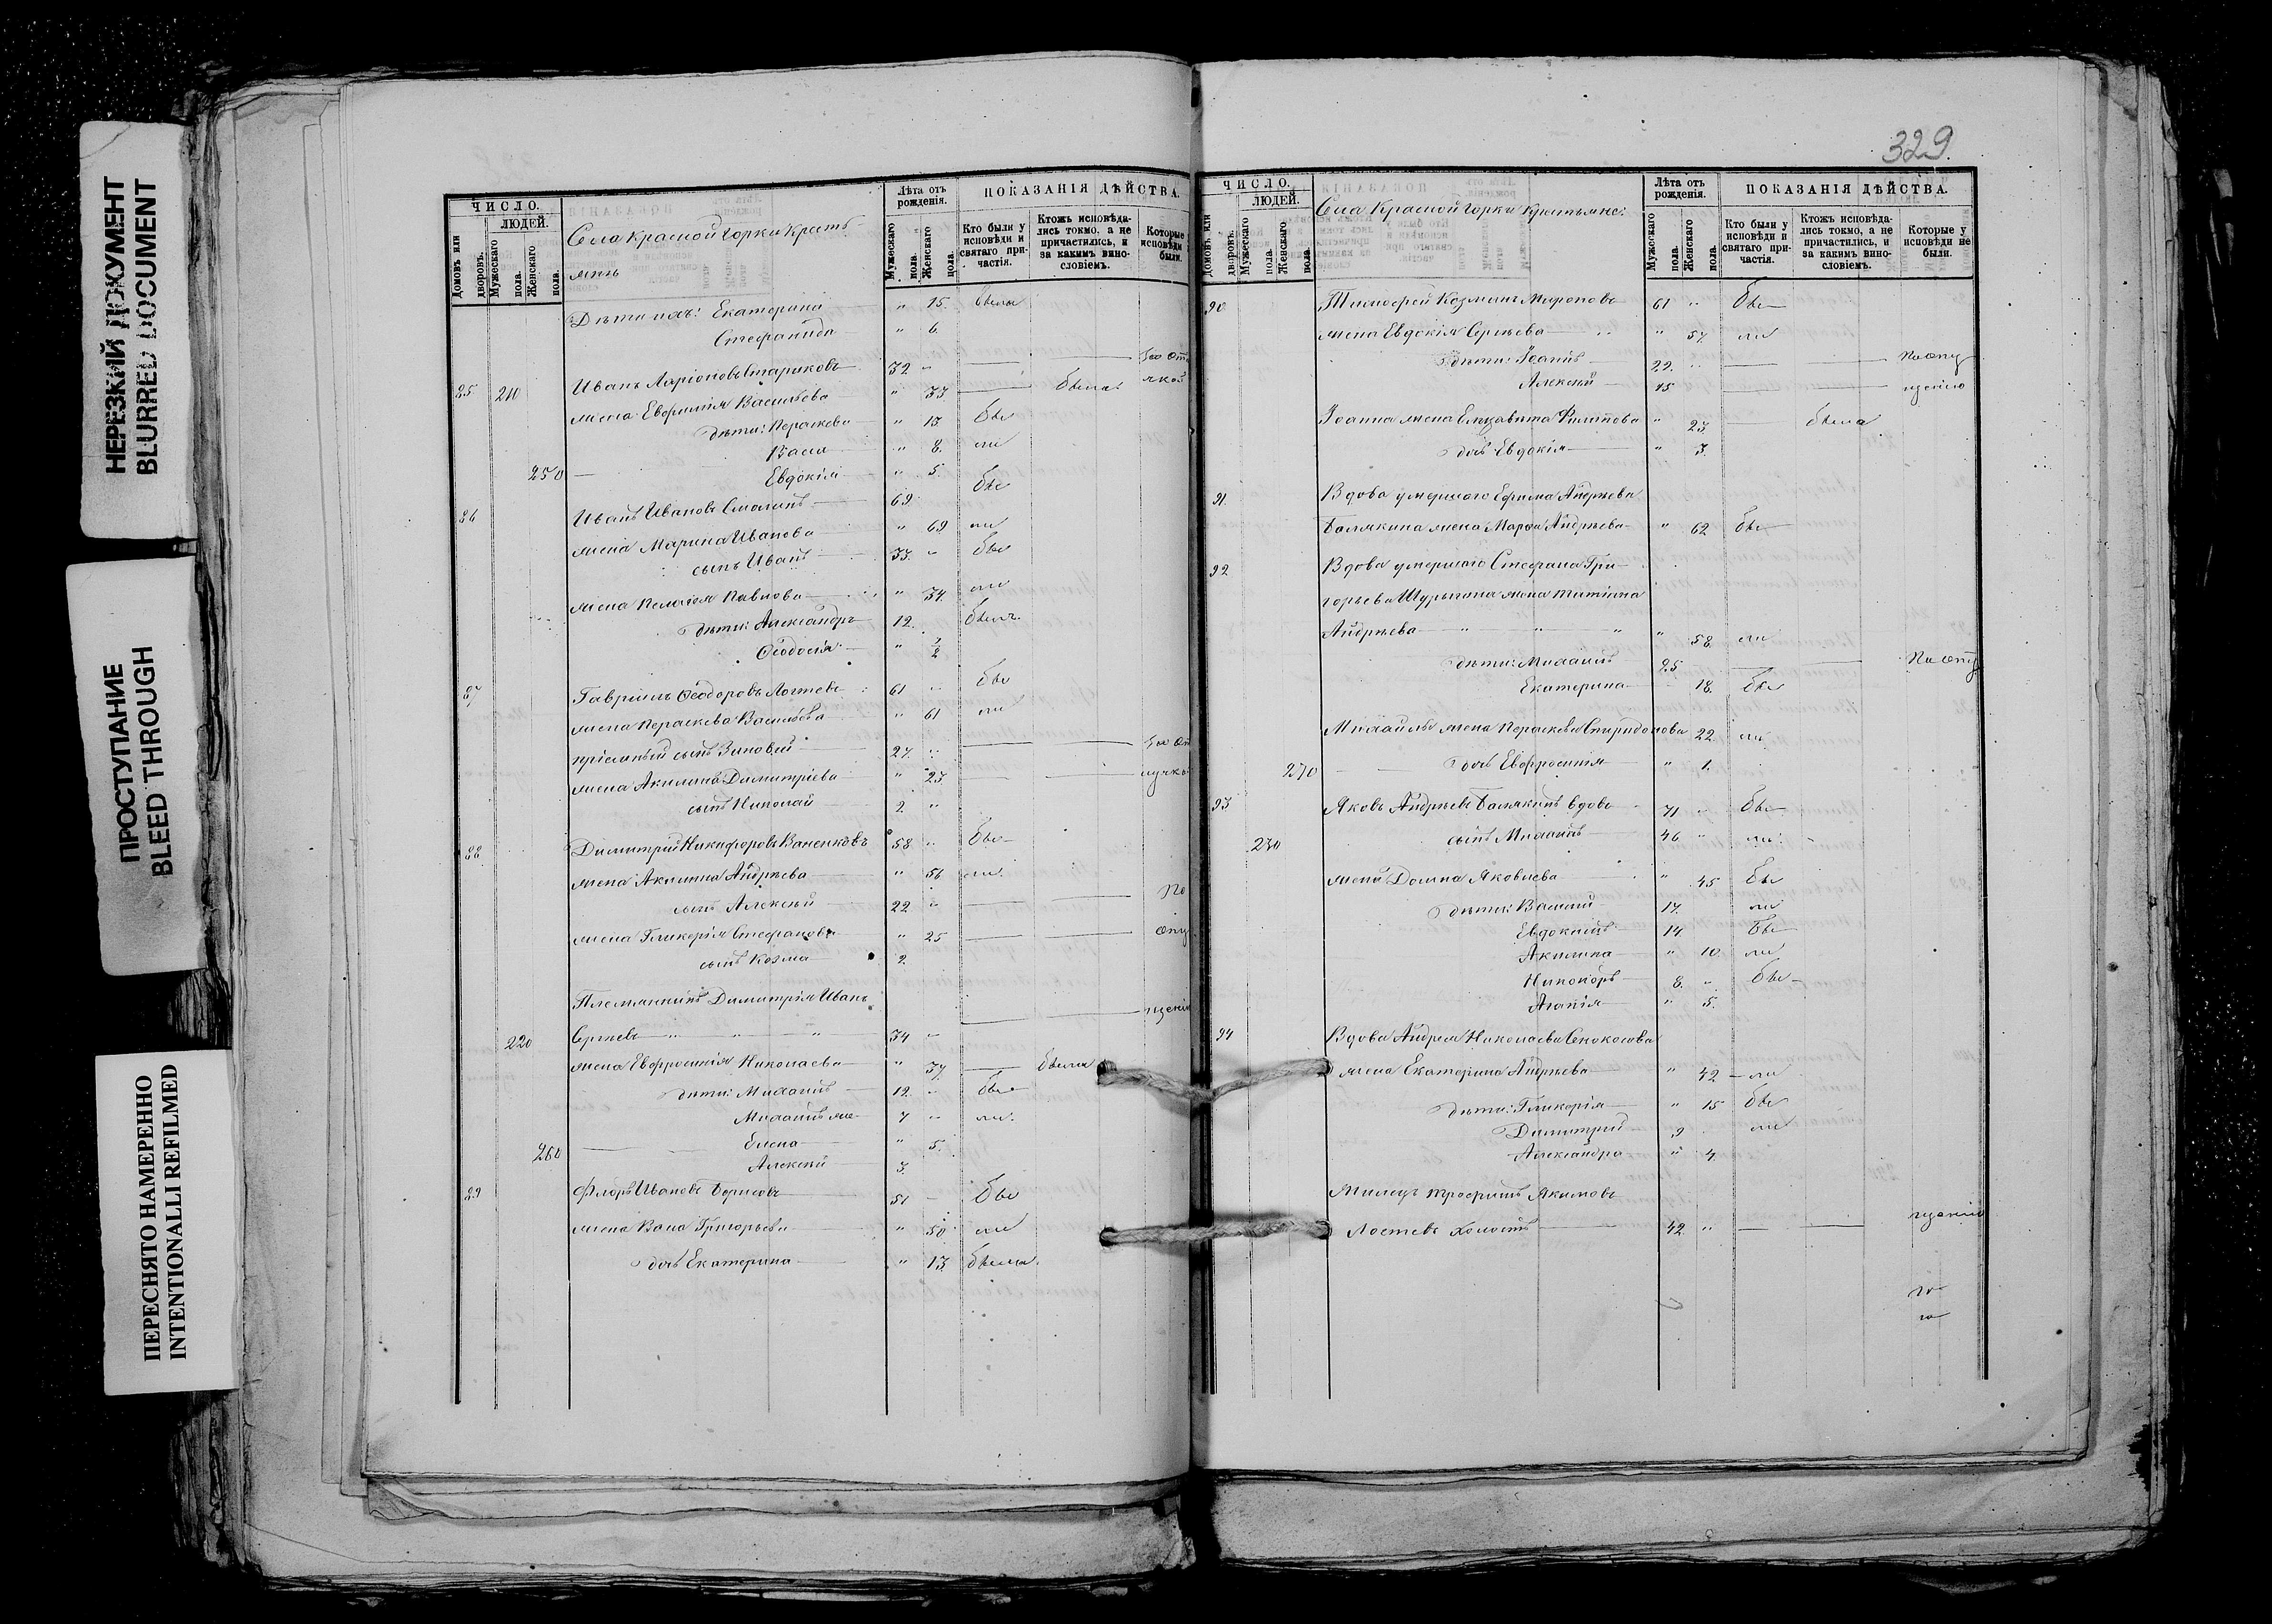 НЕРЕЗКИЙ ДОКУМЕНТ
BLURRED DOCUMENT
ПРОСТУПАНИЕ
BLEED THROUGH
ПЕРЕСНЯТО НАМЕРЕННО
INTENTIONALLI REFILMED
ЧИСЛО.
ЛЮДЕЙ.
Домовъ или дворовъ.
Мужескаго пола.
Женскаго пола.
Села Красной Горки Кресть-
яне
Лѣта отъ рожденія.
Мужескаго пола.
Женскаго пола.
ПОКАЗАНІЯ ДѢЙСТВА.
Кто были у исповѣди и святаго при-частія.
Ктожъ исповѣда-лись токмо, а не причастились, и за какимъ вино-словіемъ.
Которые исповѣди были.
Дѣти ихъ: Екатерина " 15. были
Стефанида " 6
85 210 Иванъ Ларіоновъ Стариковъ 32 " За от
жена Евфимія Васильева " 33 была
дѣти: Параскева " 13 бы
Васса " 8. ли
250 Евдокія " 5.
86 Иванъ Ивановъ 69. бы
жена Марина Иванова " 69 ли
сынъ Иванъ 33. " бы
жена Пелагея Павлова " 34 ли
дѣти: Александръ 12. былъ
Ѳеодосія " 1/2
87 Гавріилъ Ѳеодоровъ 61 " бы
жена Параскева Васильева " 61 ли
пріемный сынъ Зиновій 27. " За от
жена Акилина Димитріева " 23 лучко
сынъ Николай 2 "
88 Димитрій Никифоровъ 58 " бы
жена Акилина Андрѣева " 56 ли
сынъ Алексѣй 22 " По
жена Гликерія Стефанова " 25 опу
сынъ Козма 2.
Племянникъ Димитрія Иванъ
220 Сергѣевъ " " " 34 " щенію
жена Евфросинія Николаева " 37 была
дѣти: Михаилъ 12. " бы
Михаилъ же 7 " ли.
260 Елена " 5.
Алексѣй 3.
89 Флоръ Ивановъ Борисовъ 51 бы
жена Васса Григорьева " 50 ли
дочь Екатерина " 13. была
329.
ЧИСЛО.
ЛЮДЕЙ.
Домовъ или дворовъ.
Мужескаго пола.
Женскаго пола.
Села Красной Горки Крестьяне:
Лѣта отъ рожденія.
Мужескаго пола.
Женскаго пола.
ПОКАЗАНІЯ ДѢЙСТВА.
Кто были у исповѣди и святаго при-частія.
Ктожъ исповѣда-лись токмо, а не причастились, и за какимъ вино-словіемъ.
Которые у исповѣди не были.
90 Тимофей Козминъ Мироновъ 61 " бы
жена Евдокія Сергѣева " 57 ли
дѣти: Іоаннъ 22. " По опу
Алексѣй 15 щенію
Іоанна жена Елизавета Филипова " 23. была
дочь Евдокія " 3.
91. Вдова умершаго Ефима Андрѣева
Балякина жена Марѳа Андрѣева " 62 бы
92 Вдова умершаго Стефана Гри-
горьева Шурыгина жена
Андрѣева " " " " 58. ли
дѣти: Михаилъ 25 По опу
Екатерина 18. бы
Михаила жена Параскева Спиридонова 22. ли
270 дочь Евфросинія " 1.
93 Яковъ Андрѣевъ Балякинъ вдовъ 71 " бы
230 сынъ Михаилъ 46 " ли
жена Домна Яковлева " 45 бы
дѣти: Василій 17. ли
Евдокимъ 14. бы
Акилина " 10. ли
Никоноръ 8. " бы
Агапія " 5.
94 Вдова Андрея Николаева
жена Екатерина Андрѣева " 42 ли
дѣти: Гликерія " 15 бы
Димитрій 9 ли
Александра " 4.
Трофимъ Якимовъ
холостъ 42 " щенію